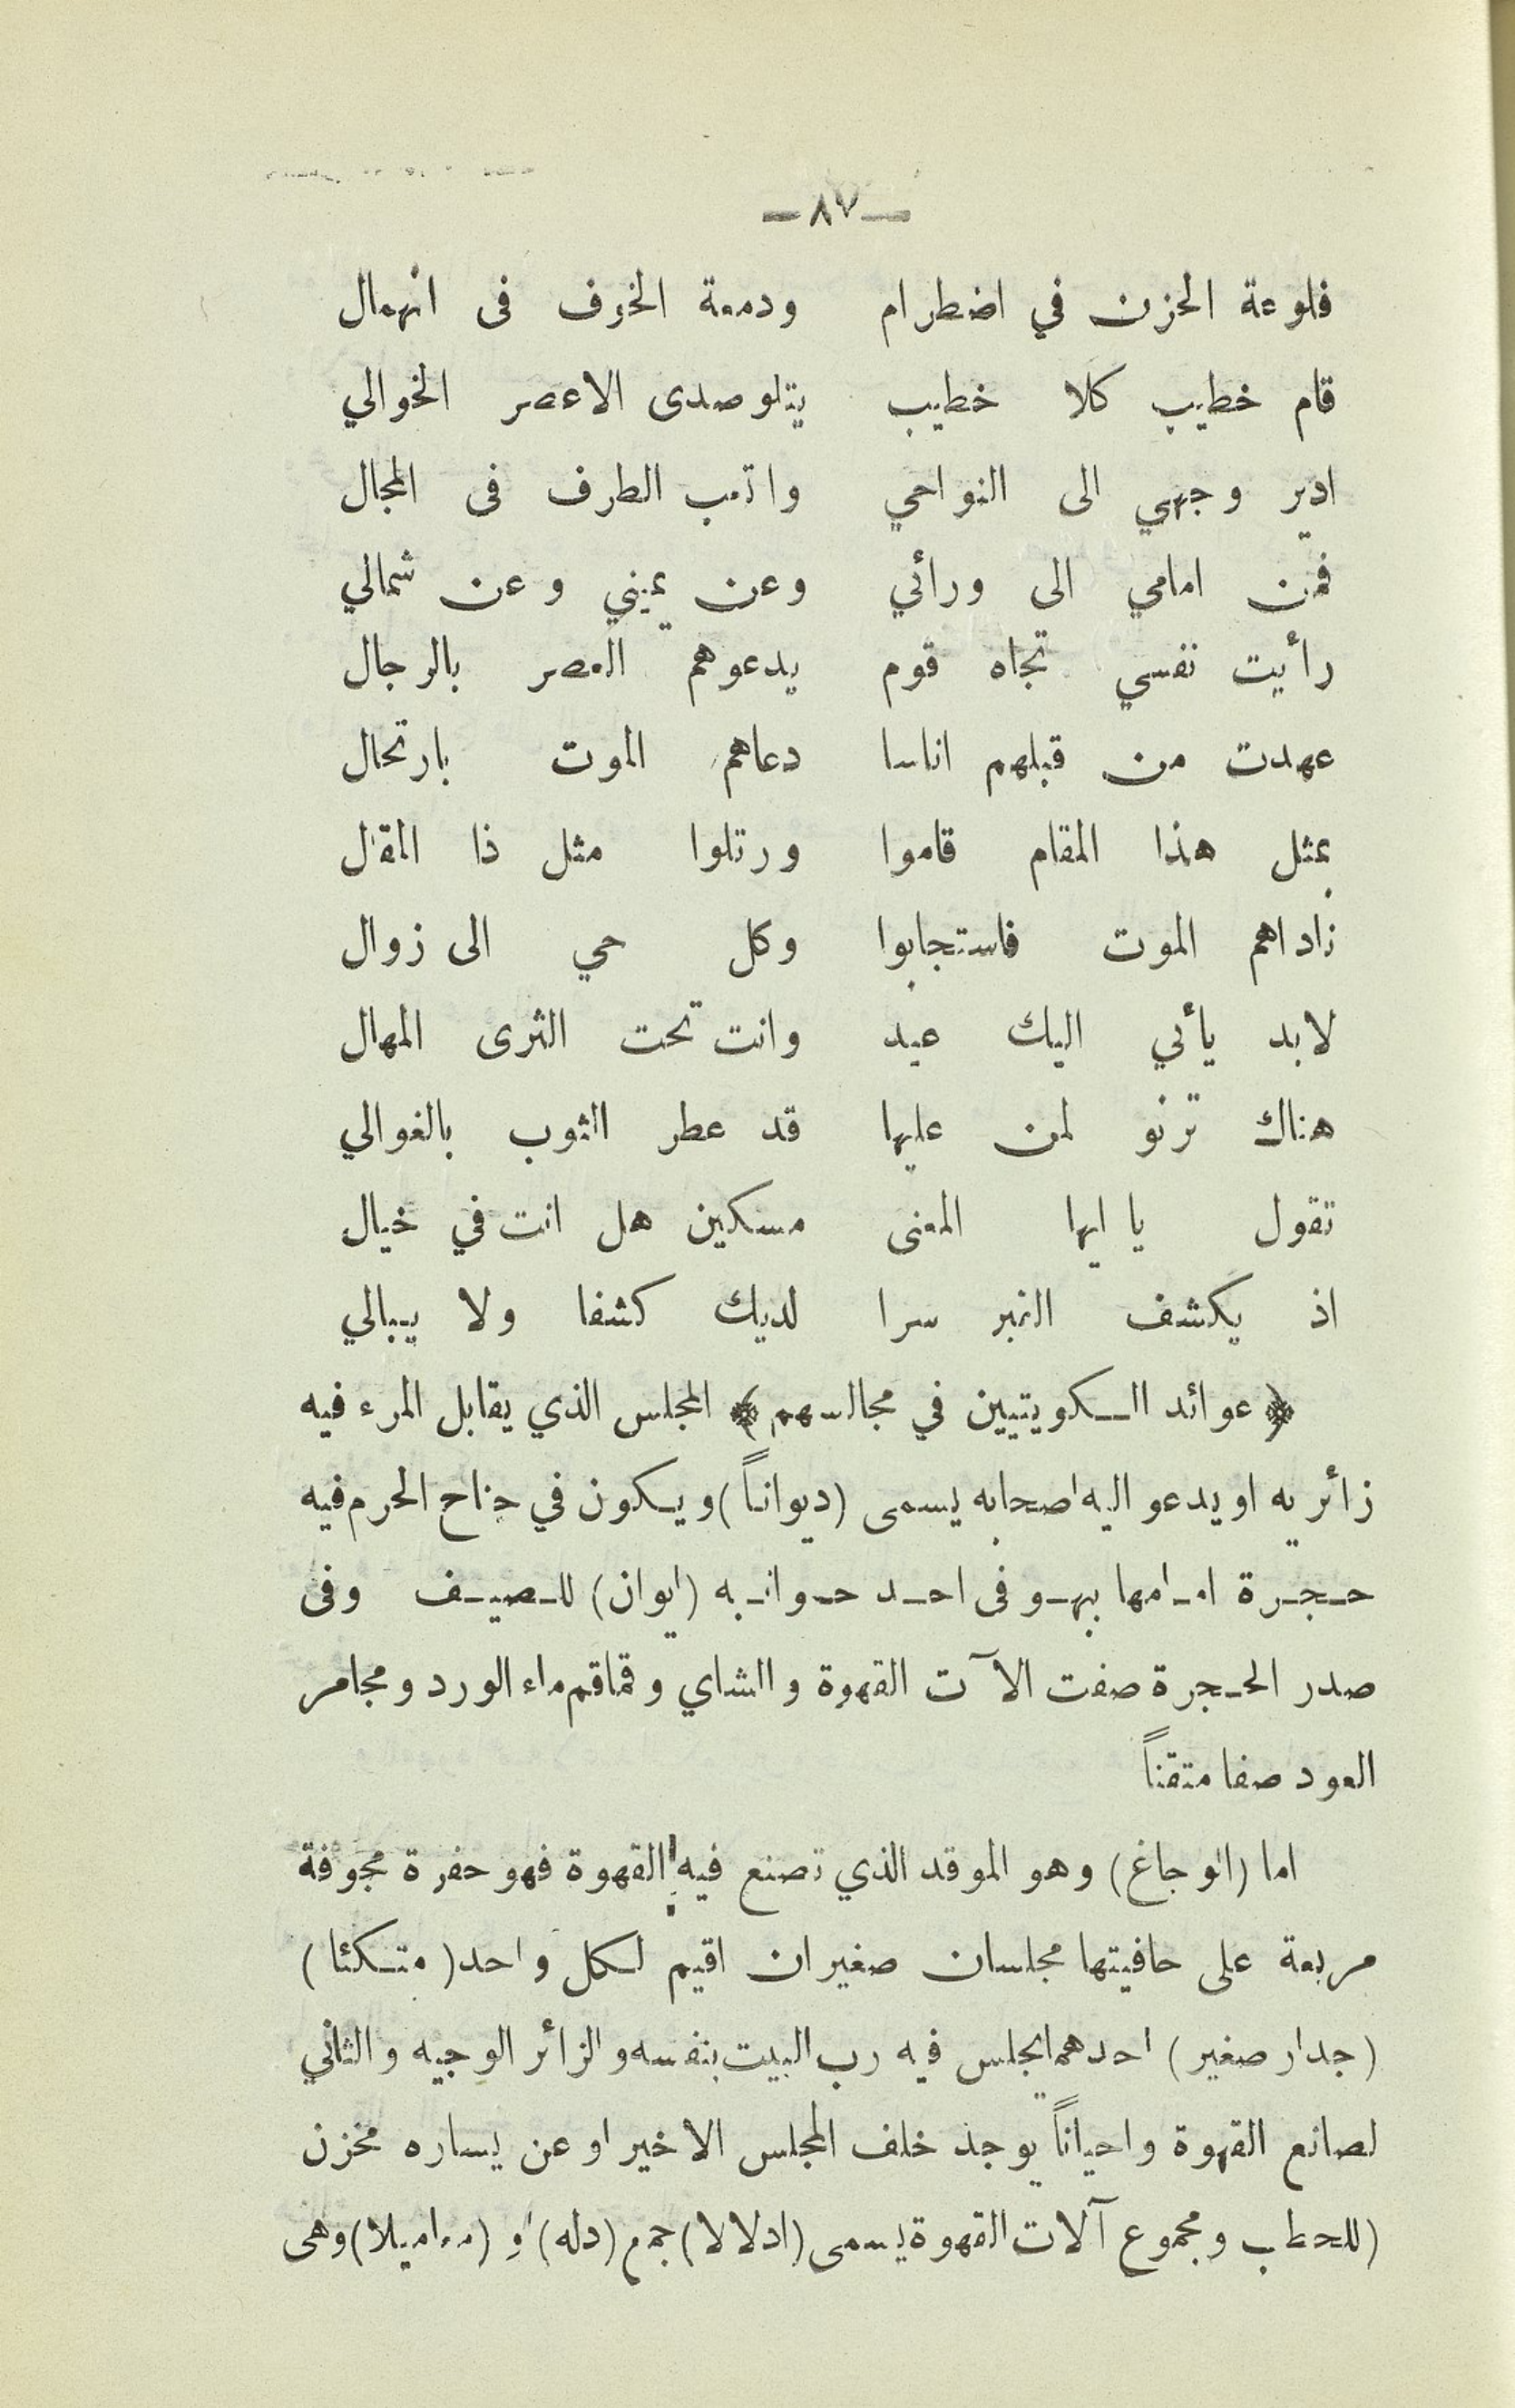 — ٨٧ —
فلوعة الحزن في اضطرام ودمعة الخوف فى انهمال
قام خطيب كلا خطيب يتلو صدى الاعصر الخوالي
ادير وجهي الى النواحي واتعب الطرف فى المجال
فمن امامي الى ورائي وعن يميني وعن شمالي
رأيت نفسي تجاه قوم يدعوهم العصر بالرجال
عهدت من قبلهم اناسا دعاهم الموت بارتحال
بمثل هذا المقام قاموا ورتلوا مثل ذا المقال
ناداهم الموت فاستجابوا وكل حي الى زوال
لابد يأتي اليك عيد وانت تحت الثرى المهال
هناك ترنو لمن عليها قد عطر الثوب بالغوالي
تقول يا ايها المعنى مسكين هل انت في خيال
اذ يكشف القبر سرا لديك كشفا ولا يبالي
﴿ عوائد الكويتيين في مجالسهم ﴾ المجلس الذي يقابل المرء فيه
زائريه او يدعو اليه اصحابه يسمى (ديواناً) ويكون في جناح الحرم فيه
حجرة امامها بهو فى احد جوانبه (ايوان) للصيف وفى
صدر الحجرة صفت الآت القهوة والشاي وقماقم ماء الورد ومجامر
العود صفا متقناً
اما (الوجاغ) وهو الموقد الذي تصنع فيه القهوة فهو حفرة مجوفة
مربعة على حافيتها مجلسان صغيران اقيم لكل واحد (متكئا)
(جدار صغير) احدهما يجلس فيه رب البيت بنفسه والزائر الوجيه والثاني
لصانع القهوة واحياناً يوجد خلف المجلس الاخير او عن يساره مخزن
(للحطب ومجموع آلات القهوة يسمى (ادلالا) جمع (دله) او (معاميلا) وهى